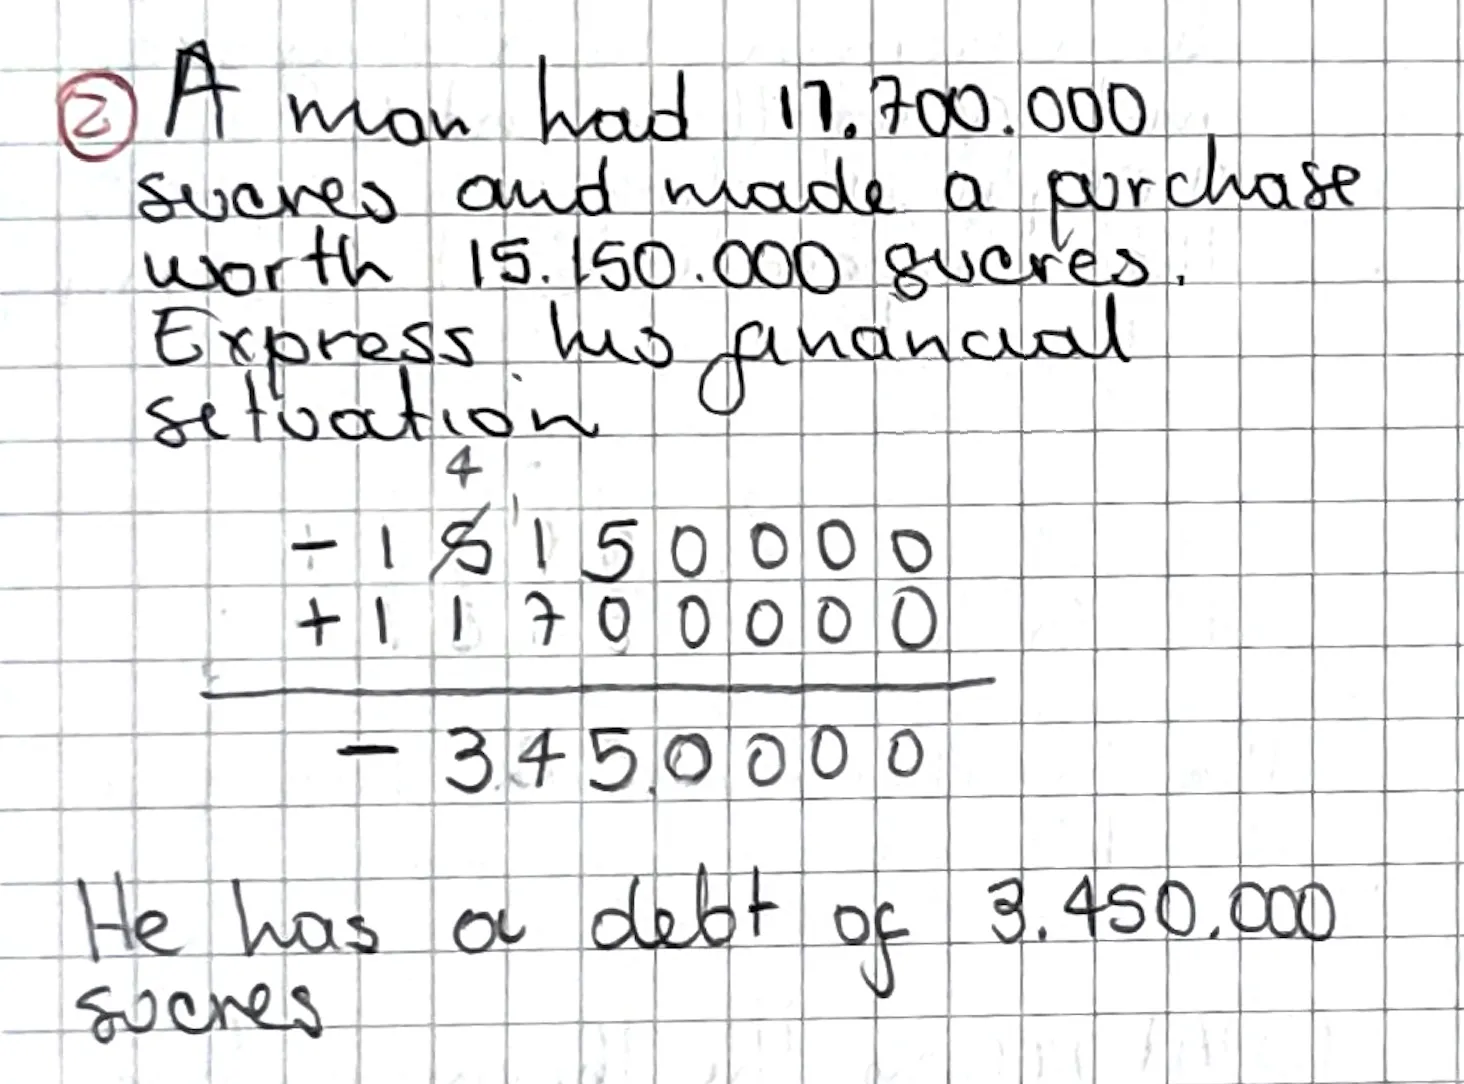 2 A man had 11.700.000
sucres and made a purchase
worth 15.150.000 sucres.
Express his financial
situation
4
1
- 1 5 1 5 0 0 0 0
+ 1 1 7 0 0 0 0 0
- 3.4 5.0 0 0 0
He has a debt of 3.450.000
sucres